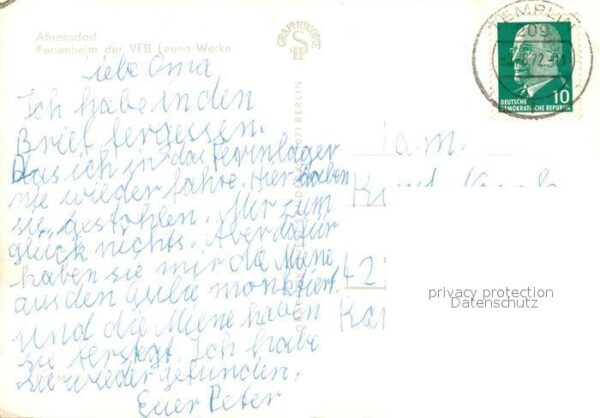 Ahrensdorf
Ferienheim der VEB Leuna-Werke
Liebe Oma
Ich habe in den
Brief fergessen.
Das ich in das Ferinlager
nie wieder fahre. Hier haben
sie gestohlen. Mir zum
glück nichts. Aber dafür
haben sie mir die Miene
aus den
und die Miene haben
sie
Ich habe
sie wieder gefunden.
Euer Peter
GRAPHOKOPIE
1071 BERLIN
TEMPLIN
09
10
DEUTSCHE
DEMOKRATISCHE REPUBLIK
Fam.
42
privacy protection
Datenschutz